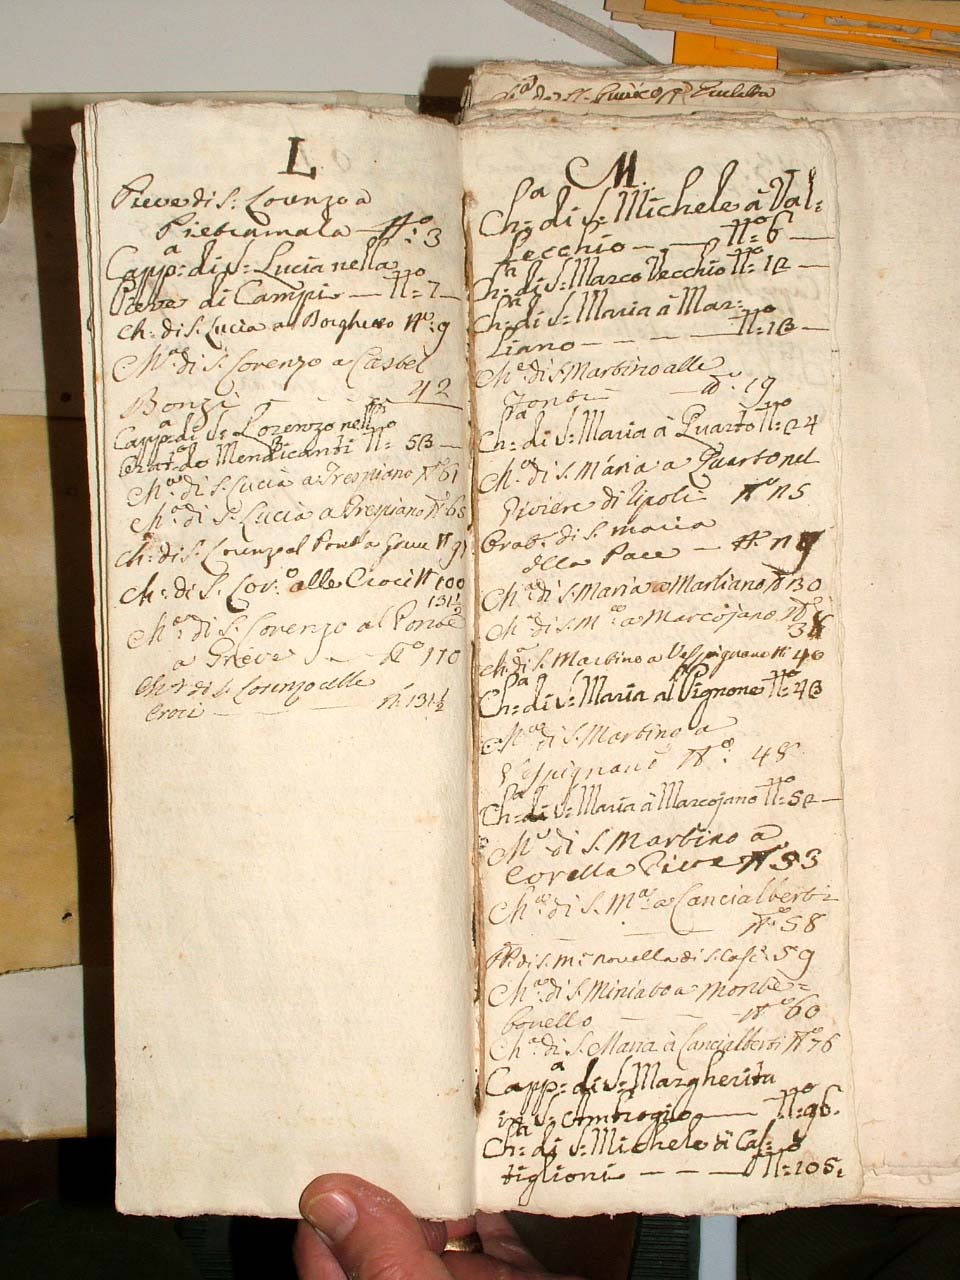 L
Pieve di S. Lorenzo a
Pietramala N.º 3
Capp.ª di S. Lucia nella
Pieve di Campi — N.º 7
Ch. di S. Lucia al Borghetto N.º 9
Ch.ª di S. Lorenzo a Castel
Bonzi 42
Capp.ª di S. Lorenzo nell
Orat.º de Mendicanti N.º 53
Ch.ª di S. Lucia a Trespiano N.º 61
Ch.ª di S. Lucia a Trespiano N.º 65
Ch.ª di S. Lorenzo al Ponte a Greve N.º 91
Ch.ª di S. Lor.º alle Croci N.º 100
131½
Ch.ª di S. Lorenzo al Ponte
a Greve N.º 110
Ch.ª di S. Lorenzo alle
Croci N.º 131½
M.
Ch.ª di S. Michele à Val=
Lecchio — N.º 6
Ch.ª di S. Marco Vecchio N.º 12
Ch.ª di S. Maria à Mar=
Liano N.º 13
Ch.ª di S. Martino alle
N.º 19
Ch.ª di S. Maria à Quarto N.º 24
Ch.ª di S. Maria a Quarto nel
Piviere di Ripoli N.º 25
Orat. di S. Maria
della Pace — N.º
Ch.ª di S. Maria a Marliano N.º 30
Ch.ª di S. M.ª a Marcojano N.º
Ch.ª di S. Martino a Vespignano N.º 40
Ch.ª di S. Maria al Pignone N.º 43
Ch.ª di S. Martino a
Vespignano N.º 48
Ch.ª di S. Maria à Marcojano N.º 52
Ch.ª di S. Martino a
Corella Pieve N.º 53
Ch.ª di S. M.ª a Lancialberti
N.º 58
di S. M. Novella di S. Casc. 59
Ch.ª di S. Miniato a Monte=
bonello N.º 60
Ch.ª di S. Maria à Lancialberti N.º 76
Capp.ª di S. Margherita
in S. Ambrogio — N.º 96.
Ch.ª di S. Michele à Cas=
tiglioni — N.º 105.